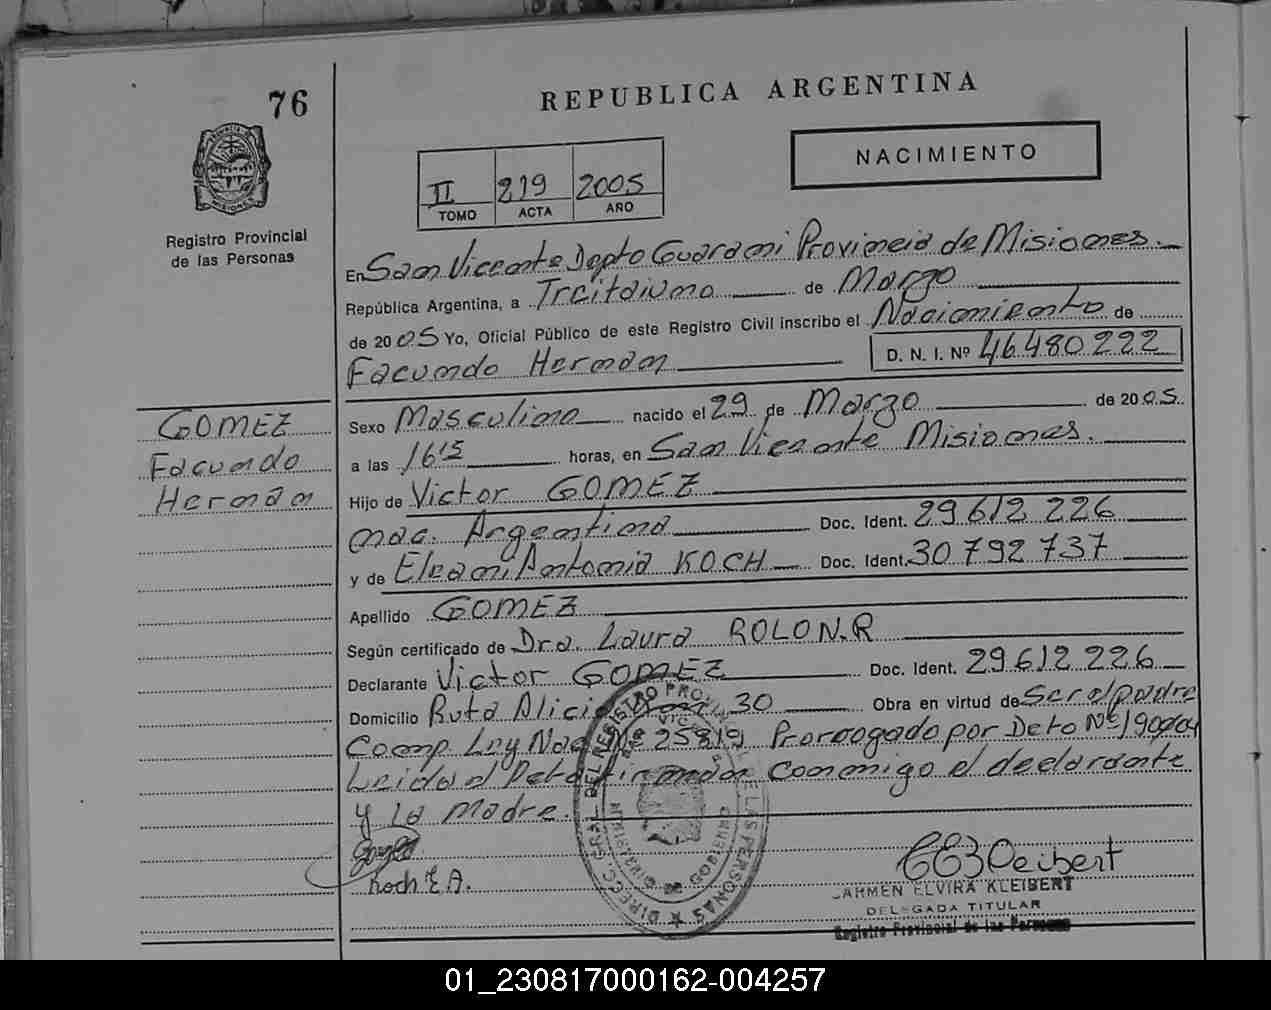 76
REPUBLICA ARGENTINA
NACIMIENTO
II 219 2005
TOMO ACTA AÑO
Registro Provincial
de las Personas
En San Vicente Depto Guarani Provincia de Misiones.
República Argentina, a Treitaiuno de Marzo
de 2005 Yo, Oficial Público de este Registro Civil inscribo el Nacimiento de
Facundo Hernán D. N. I. Nº 46480222
GOMEZ
Facundo
Hernán
Sexo Masculino nacido el 29 de Marzo de 2005.
a las 16 15 horas, en San Vicente Misiones.
Hijo de Victor GOMEZ
nac. Argentina Doc. Ident. 29612226
y de Eleani Antonia KOCH Doc. Ident. 30792737
Apellido GOMEZ
Según certificado de Dra. Laura ROLON.R
Declarante Victor GOMEZ Doc. Ident. 29612226
Domicilio Ruta Alicia 30 Obra en virtud de Ser el padre
Comp. Ley Nac Nº 25819 Prorrogado por Deto Nº 190/04
Leida el firman conmigo el declarante
y La Madre.
Koch E A.
CARMEN ELVIRA KLEIBERT
DELEGADA TITULAR
Registro Provincial de las Personas
DIREC. GRAL. DEL REGISTRO PROVINCIAL DE LAS PERSONAS
MINISTERIO DE GOBIERNO
01_230817000162-004257